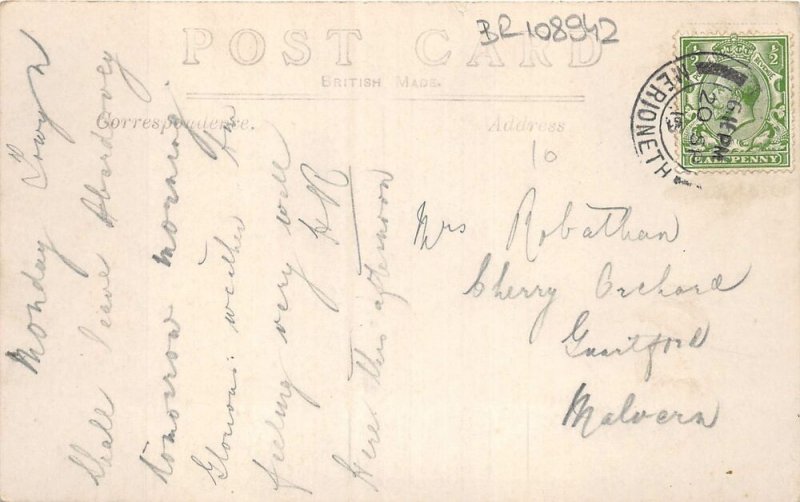 BR 108942
POST CARD
BRITISH MADE.
Correspondence.
Address
10
½ ½
HALFPENNY
MERIONETH
6 45 PM
20 SP
Monday Towyn
Shall leave Aberdovey
tomorrow morning.
Glorious weather am
feeling very well
HR
Here this afternoon
Mrs Robathan
Cherry Orchard
Malvern